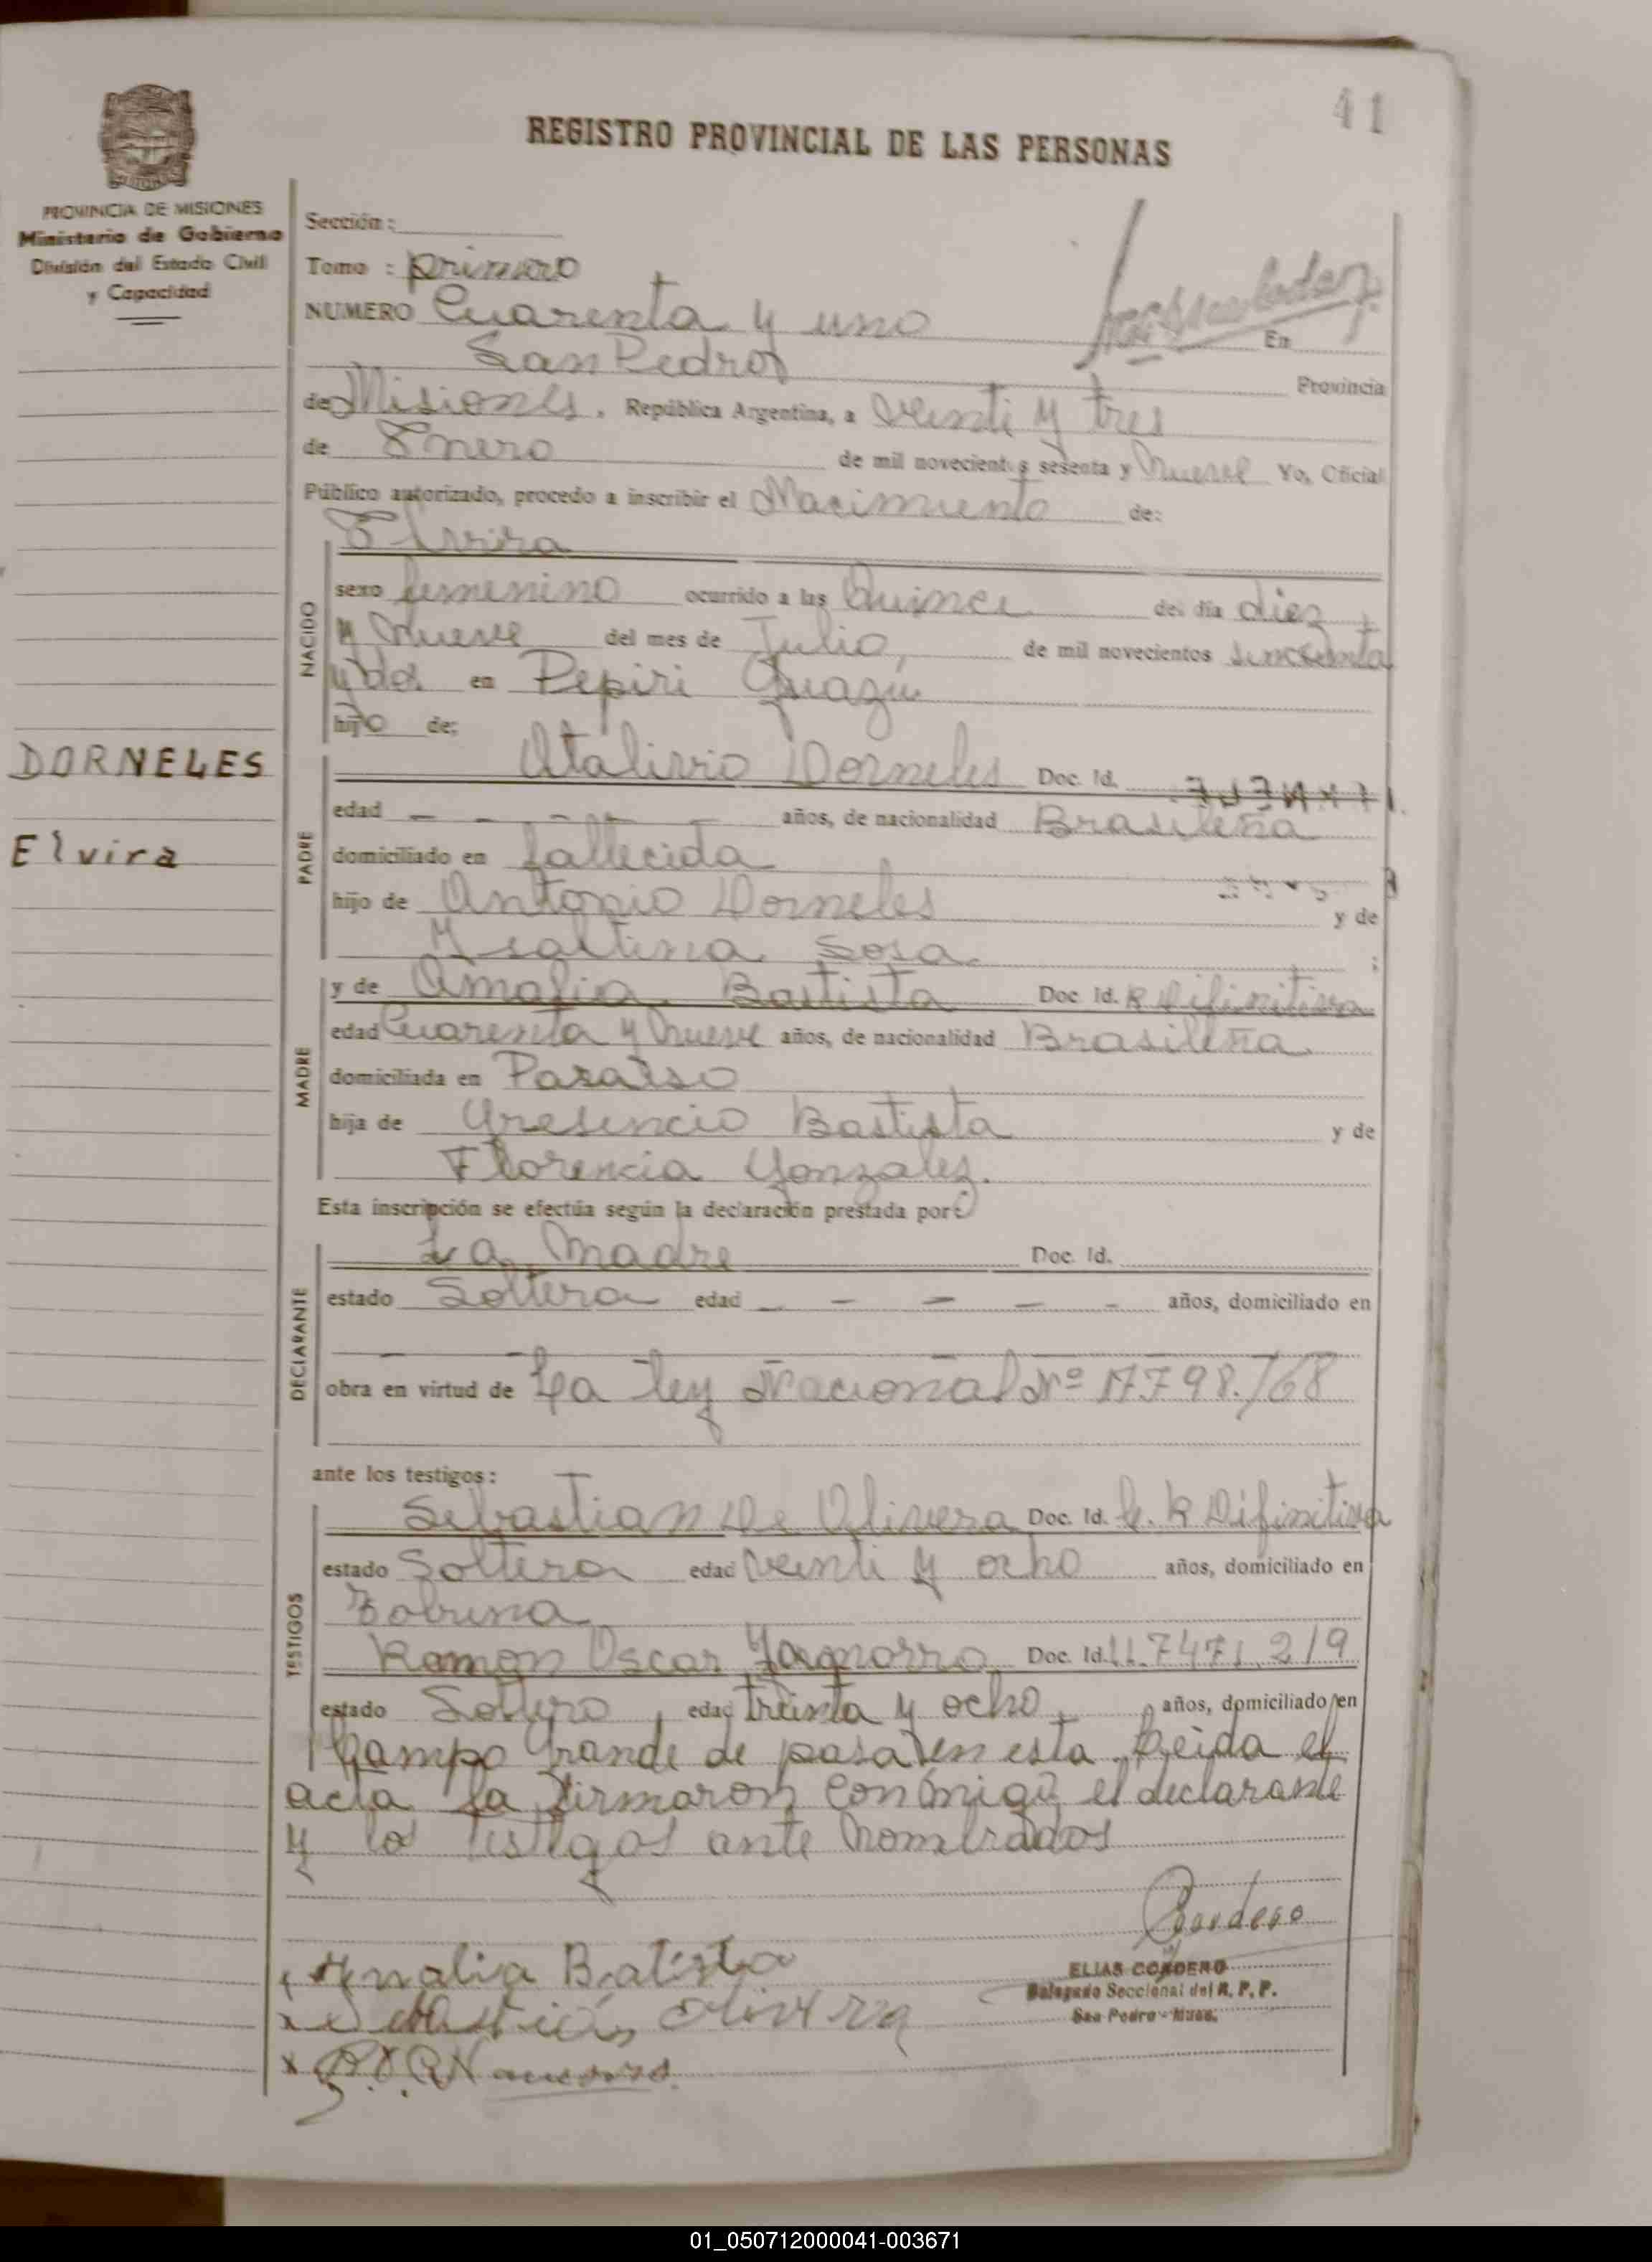 41
REGISTRO PROVINCIAL DE LAS PERSONAS
PROVINCIA DE MISIONES
Ministerio de Gobierno
División del Estado Civil
y Capacidad
Sección:
Tomo : primero
NUMERO Cuarenta y uno
En
San Pedro
Provincia
de Misiones, República Argentina, a Veinti y tres
de Enero de mil novecientos sesenta y Nueve Yo, Oficial
Público autorizado, procedo a inscribir el Nacimiento de:
Elvira
NACIDO
sexo femenino ocurrido a las Quince del día diez
y Nueve del mes de Julio, de mil novecientos sincuenta
y dos en Pepiri Guazu
hijo de:
DORNELES
Elvira
PADRE
Atalivio Dorneles Doc. Id.
edad — — — — años, de nacionalidad Brasileña
domiciliado en fallecida
hijo de Antonio Dorneles y de
Ysaltina Sosa ;
MADRE
y de Amalia Bastista Doc. Id. R Difinitiva
edad Cuarenta y Nueve años, de nacionalidad Brasileña
domiciliada en Paraiso
hija de Gresencio Bastista y de
Florencia Gonzalez.
Esta inscripción se efectúa según la declaración prestada por:
DECLARANTE
La Madre Doc. Id.
estado Soltera edad — — — — — años, domiciliado en
obra en virtud de La ley Nacional Nº 17798./68
ante los testigos:
TESTIGOS
Sebastian De Olivera Doc. Id. C. R Difinitiva
estado Soltera edad Veinti y ocho años, domiciliado en
Tobuna
Ramon Oscar Doc. Id. 7471.219
estado Soltero, edad treinta y ocho, años, domiciliado en
Campo Grande de pasa en esta. Leida el
acta la firmaron conmigo, el declarante
y los testigos ante Nombrados
Cordero
ELIAS CORDERO
Delegado Seccional del R. P. P.
San Pedro - Mnes.
Amalia Batista
x Sebastián Olivera
x
01_050712000041-003671